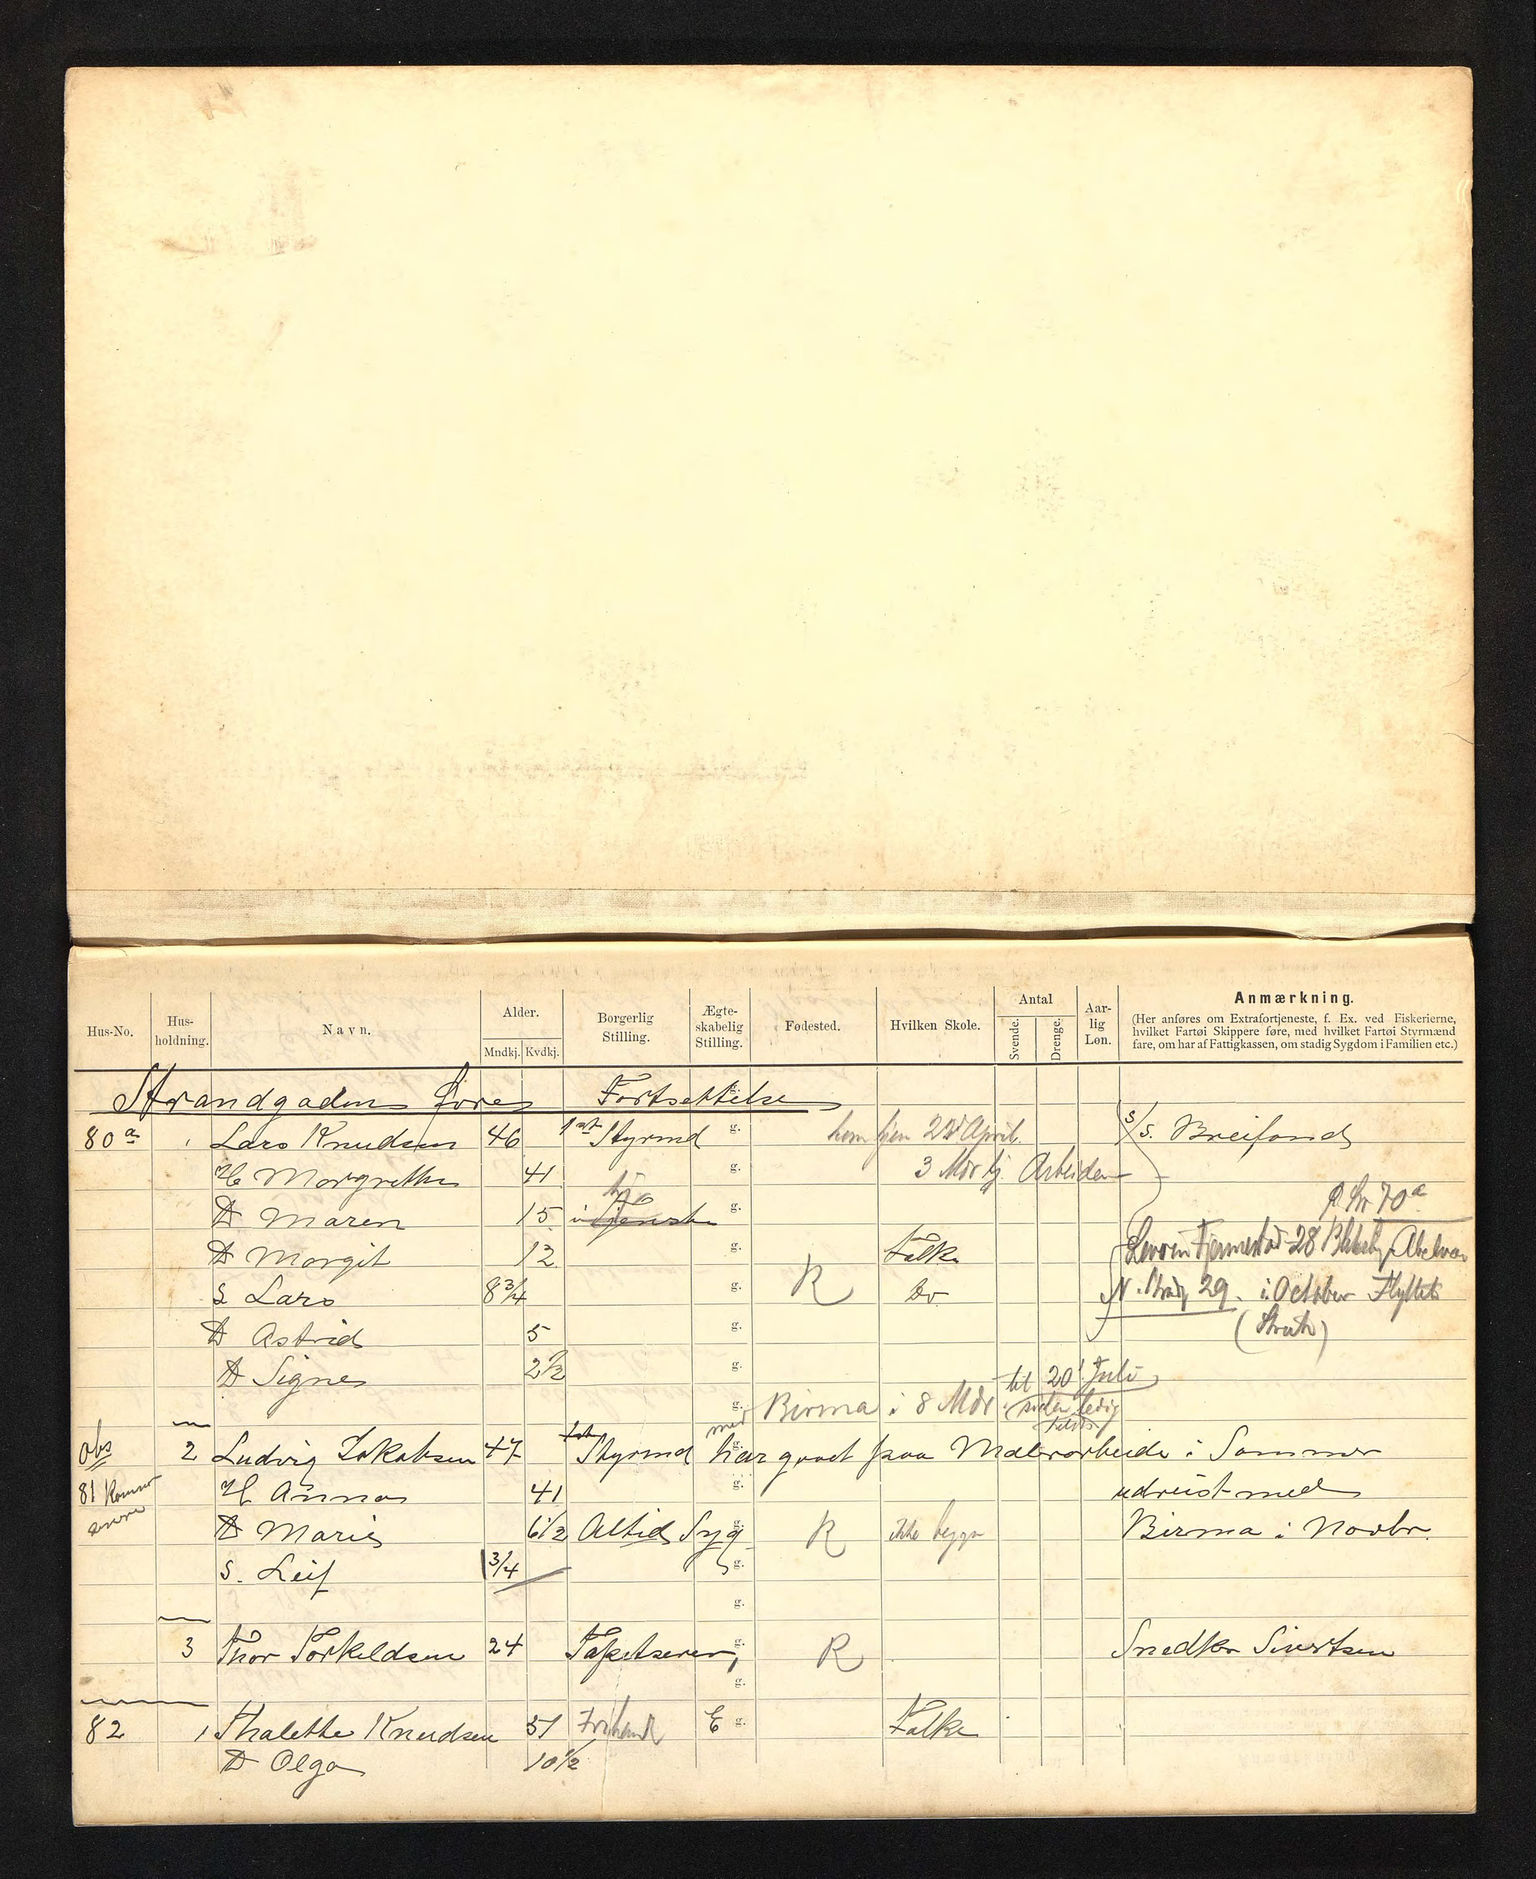 Hus-No. Hus-holdning. Navn. Alder. Mndkj. Kvdkj. Borgerlig Stilling. Ægte-skabelig Stilling. Fødested. Hvilken Skole. Antal Svende. Drenge. Aar-lig Løn. Anmærkning.
(Her anføres om Extrafortjeneste, f. Ex. ved Fiskerierne,
hvilket Fartøi Skippere føre, med hvilket Fartøi Styrmænd
fare, om har af Fattigkassen, om stadig Sygdom i Familien etc.)
Strandgaden Øvre Fortsettelse
80a 1 Lars Knudsen 46 1st Styrmd g. hjem 22d April S/S. Breifond
H Margrethe 41 g. 3 Mdr Arbeider
D Maren 15 i Tjeneste g. 70a
D Margit 12 g. Folke 28
S Lars 8 3/4 g. R Do N. 29. i October Flyttet
D Astrid 5 g.
D Signe 2 1/2 g. til 20 Juli
g. med Birma i 8 Mdr siden ledig
Obs 2 Ludvig Jakobsen 47 1st Styrmd har gaaet paa Malerarbeide i Sommer
81 Kommer senere H Anna 41 g. udreist med
D Marie 6 1/2 Altid Syg g. R ikke begge Birma i Novbr
S. Leif 3/4 g.
g.
3 Thor Torkeldsen 24 Tapetserer, g. R Snedker Sivertsen
g.
82 1 Thalette Knudsen 51 E g. Folke
D Olga 10 1/2